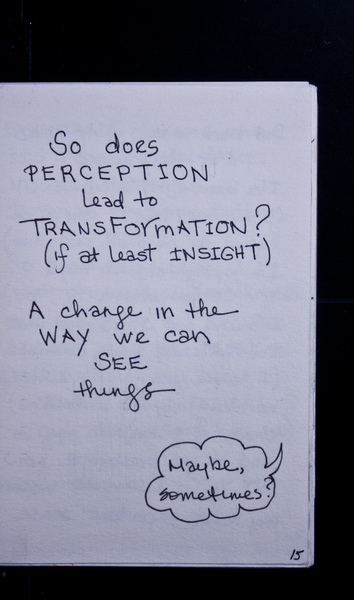 So does
PERCEPTION
lead to
TRANSFORMATION?
(if at least INSIGHT)
A change in the
WAY we can
SEE
things
Maybe,
sometimes?
15